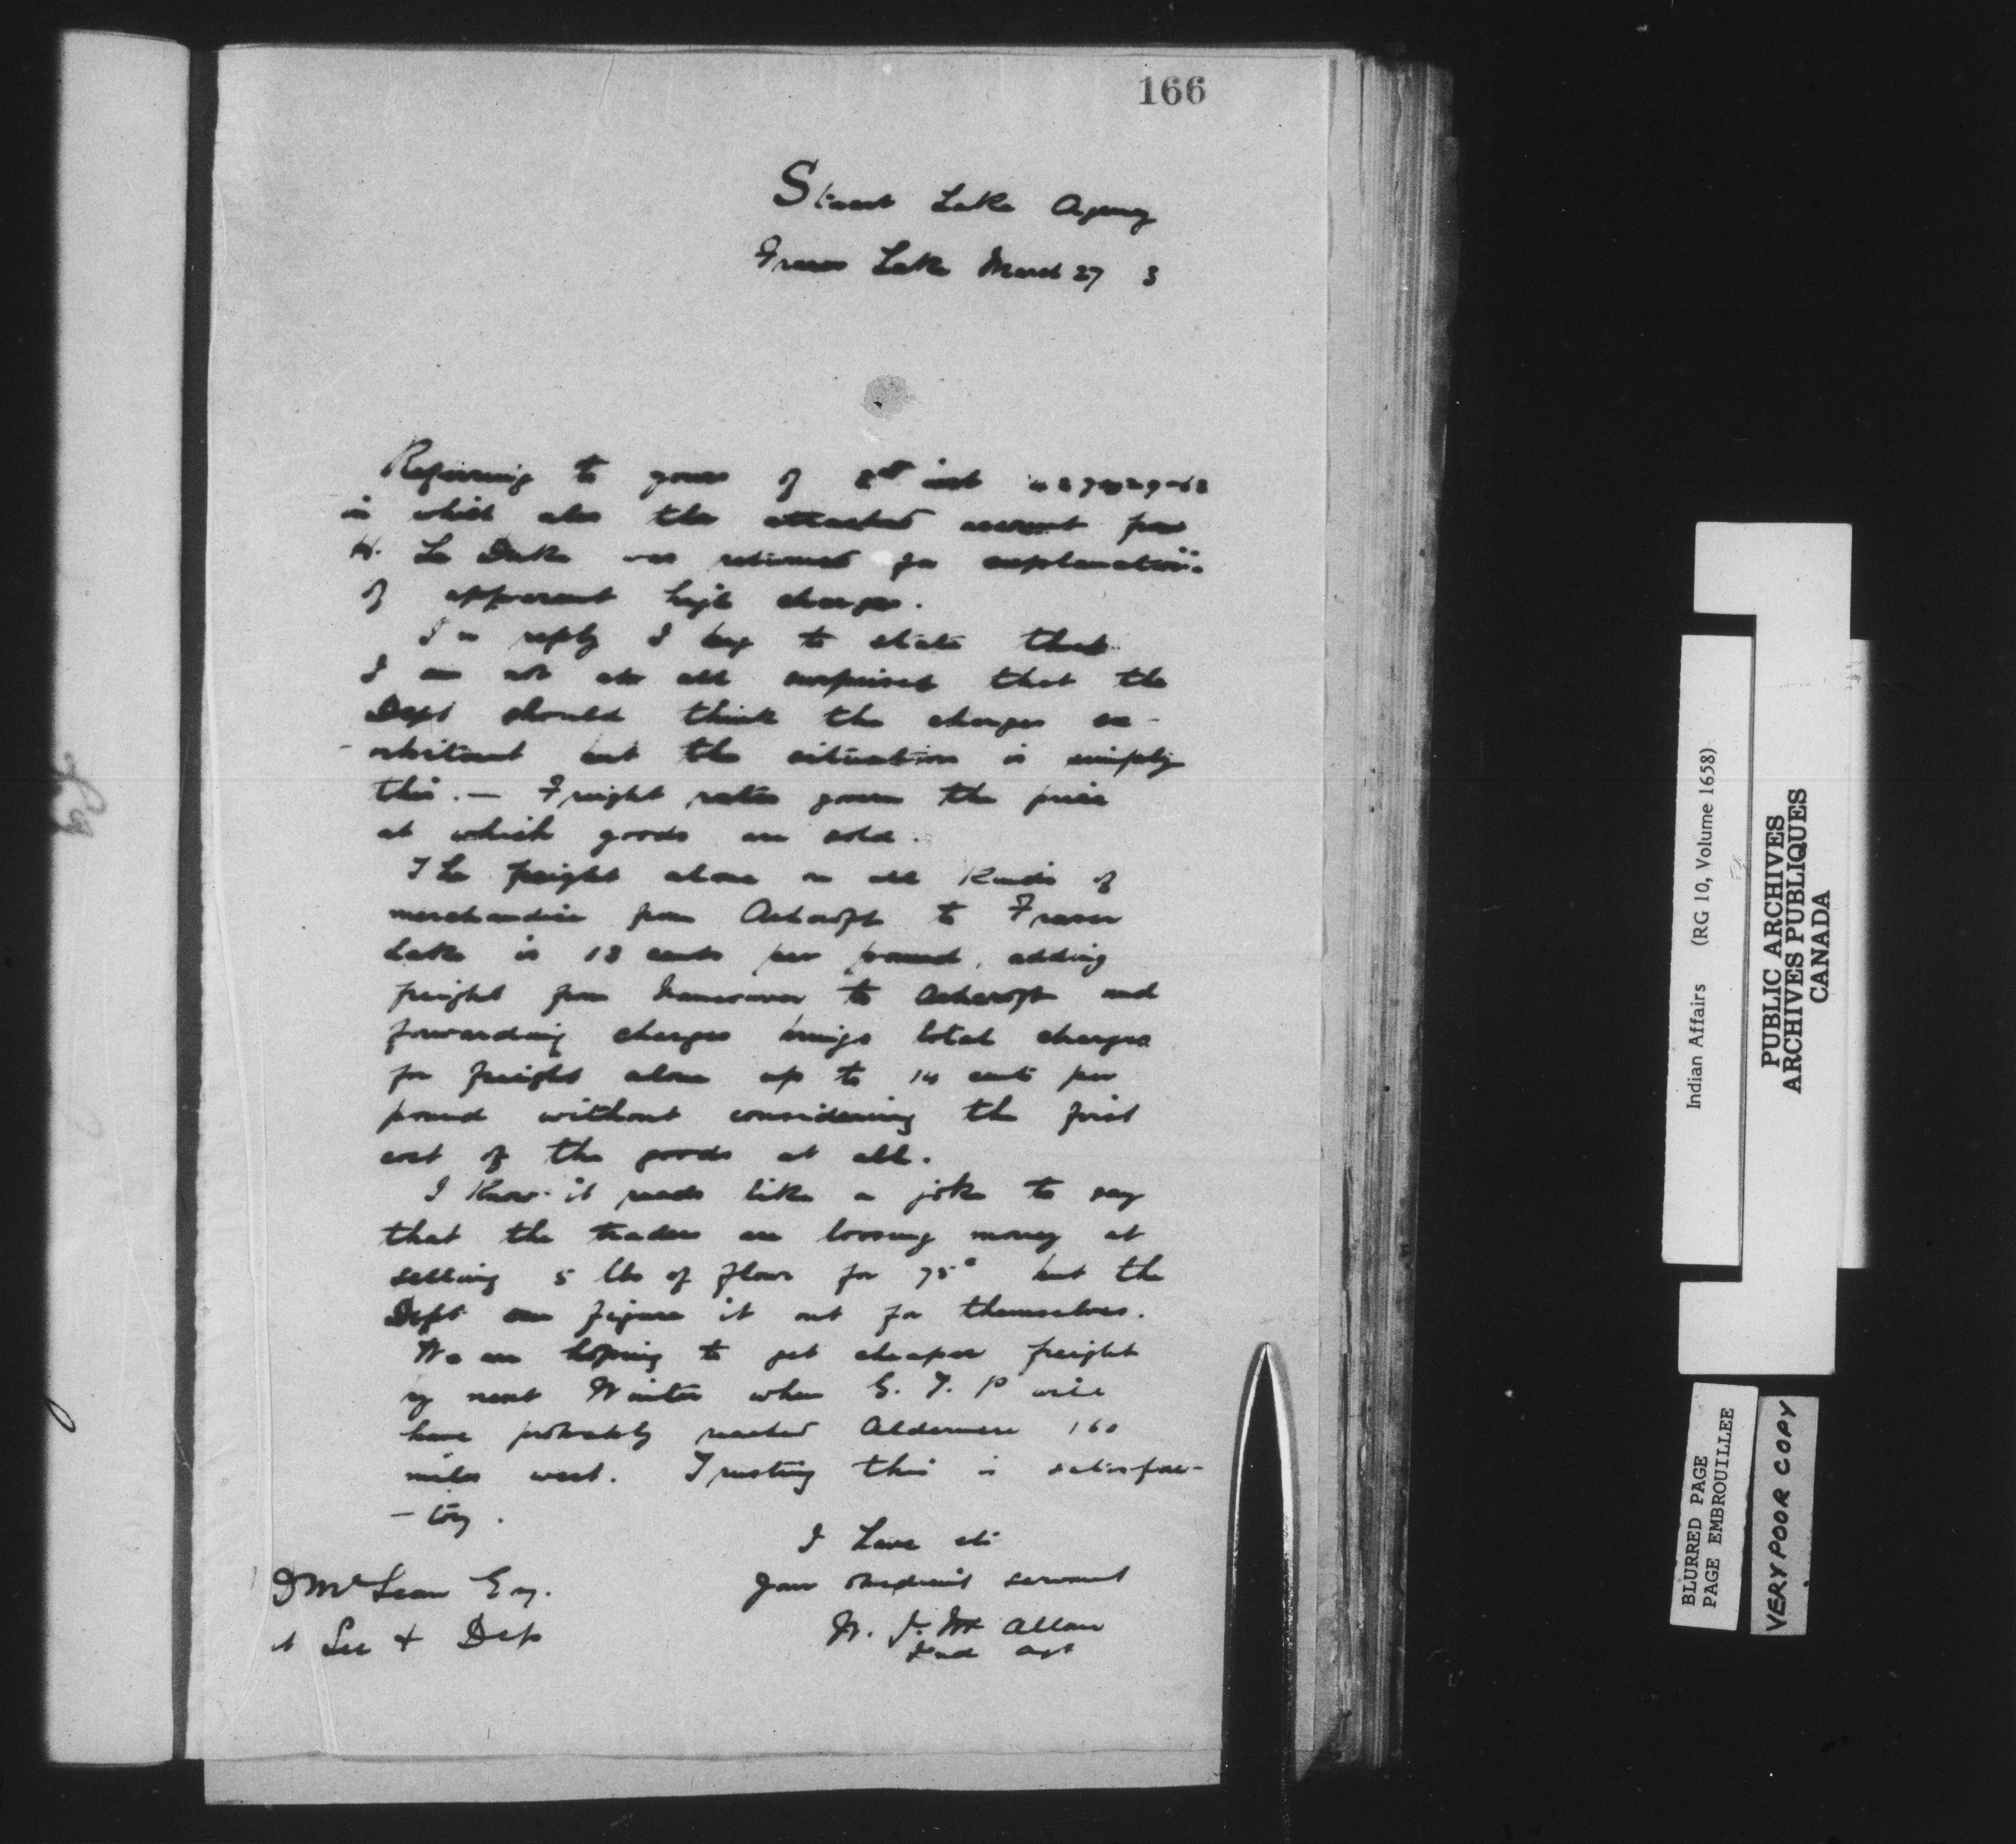 166
Stuart Lake Agency
Fraser Lake March 27 3
Referring to yours of inst
in which also the attached account from
H. Le Duke was returned for explanation
of apparent high charges.
In reply I beg to state that
I am not at all surprised that the
Dept should think the charges ex-
-orbitant but the situation is simply
this. — Freight rates govern the price
at which goods are sold.
The freight alone on all Kinds of
merchandise from Ashcroft to Fraser
Lake is 13 cents per pound, adding
freight from Vancouver to Ashcroft and
forwarding charges brings total charges
for freight alone up to 14 cents per
pound without considering the first
cost of the goods at all.
I Know it reads like a joke to say
that the traders are loosing money at
selling 5 lbs of flour for 75c but the
Dept can figure it out for themselves.
We are hoping to get cheaper freight
by next Winter when G. T. P will
have probably reached Aldermere 160
miles west. Trusting this is satisfac-
-tory.
I have etc
Your obedient servant
W. J. McAllan
Ind Agt
J D McLean Esq.
Sec & Dep
Indian Affairs (RG 10, Volume 1658)
PUBLIC ARCHIVES
ARCHIVES PUBLIQUES
CANADA
BLURRED PAGE
PAGE EMBROUILLEE
VERY POOR COPY